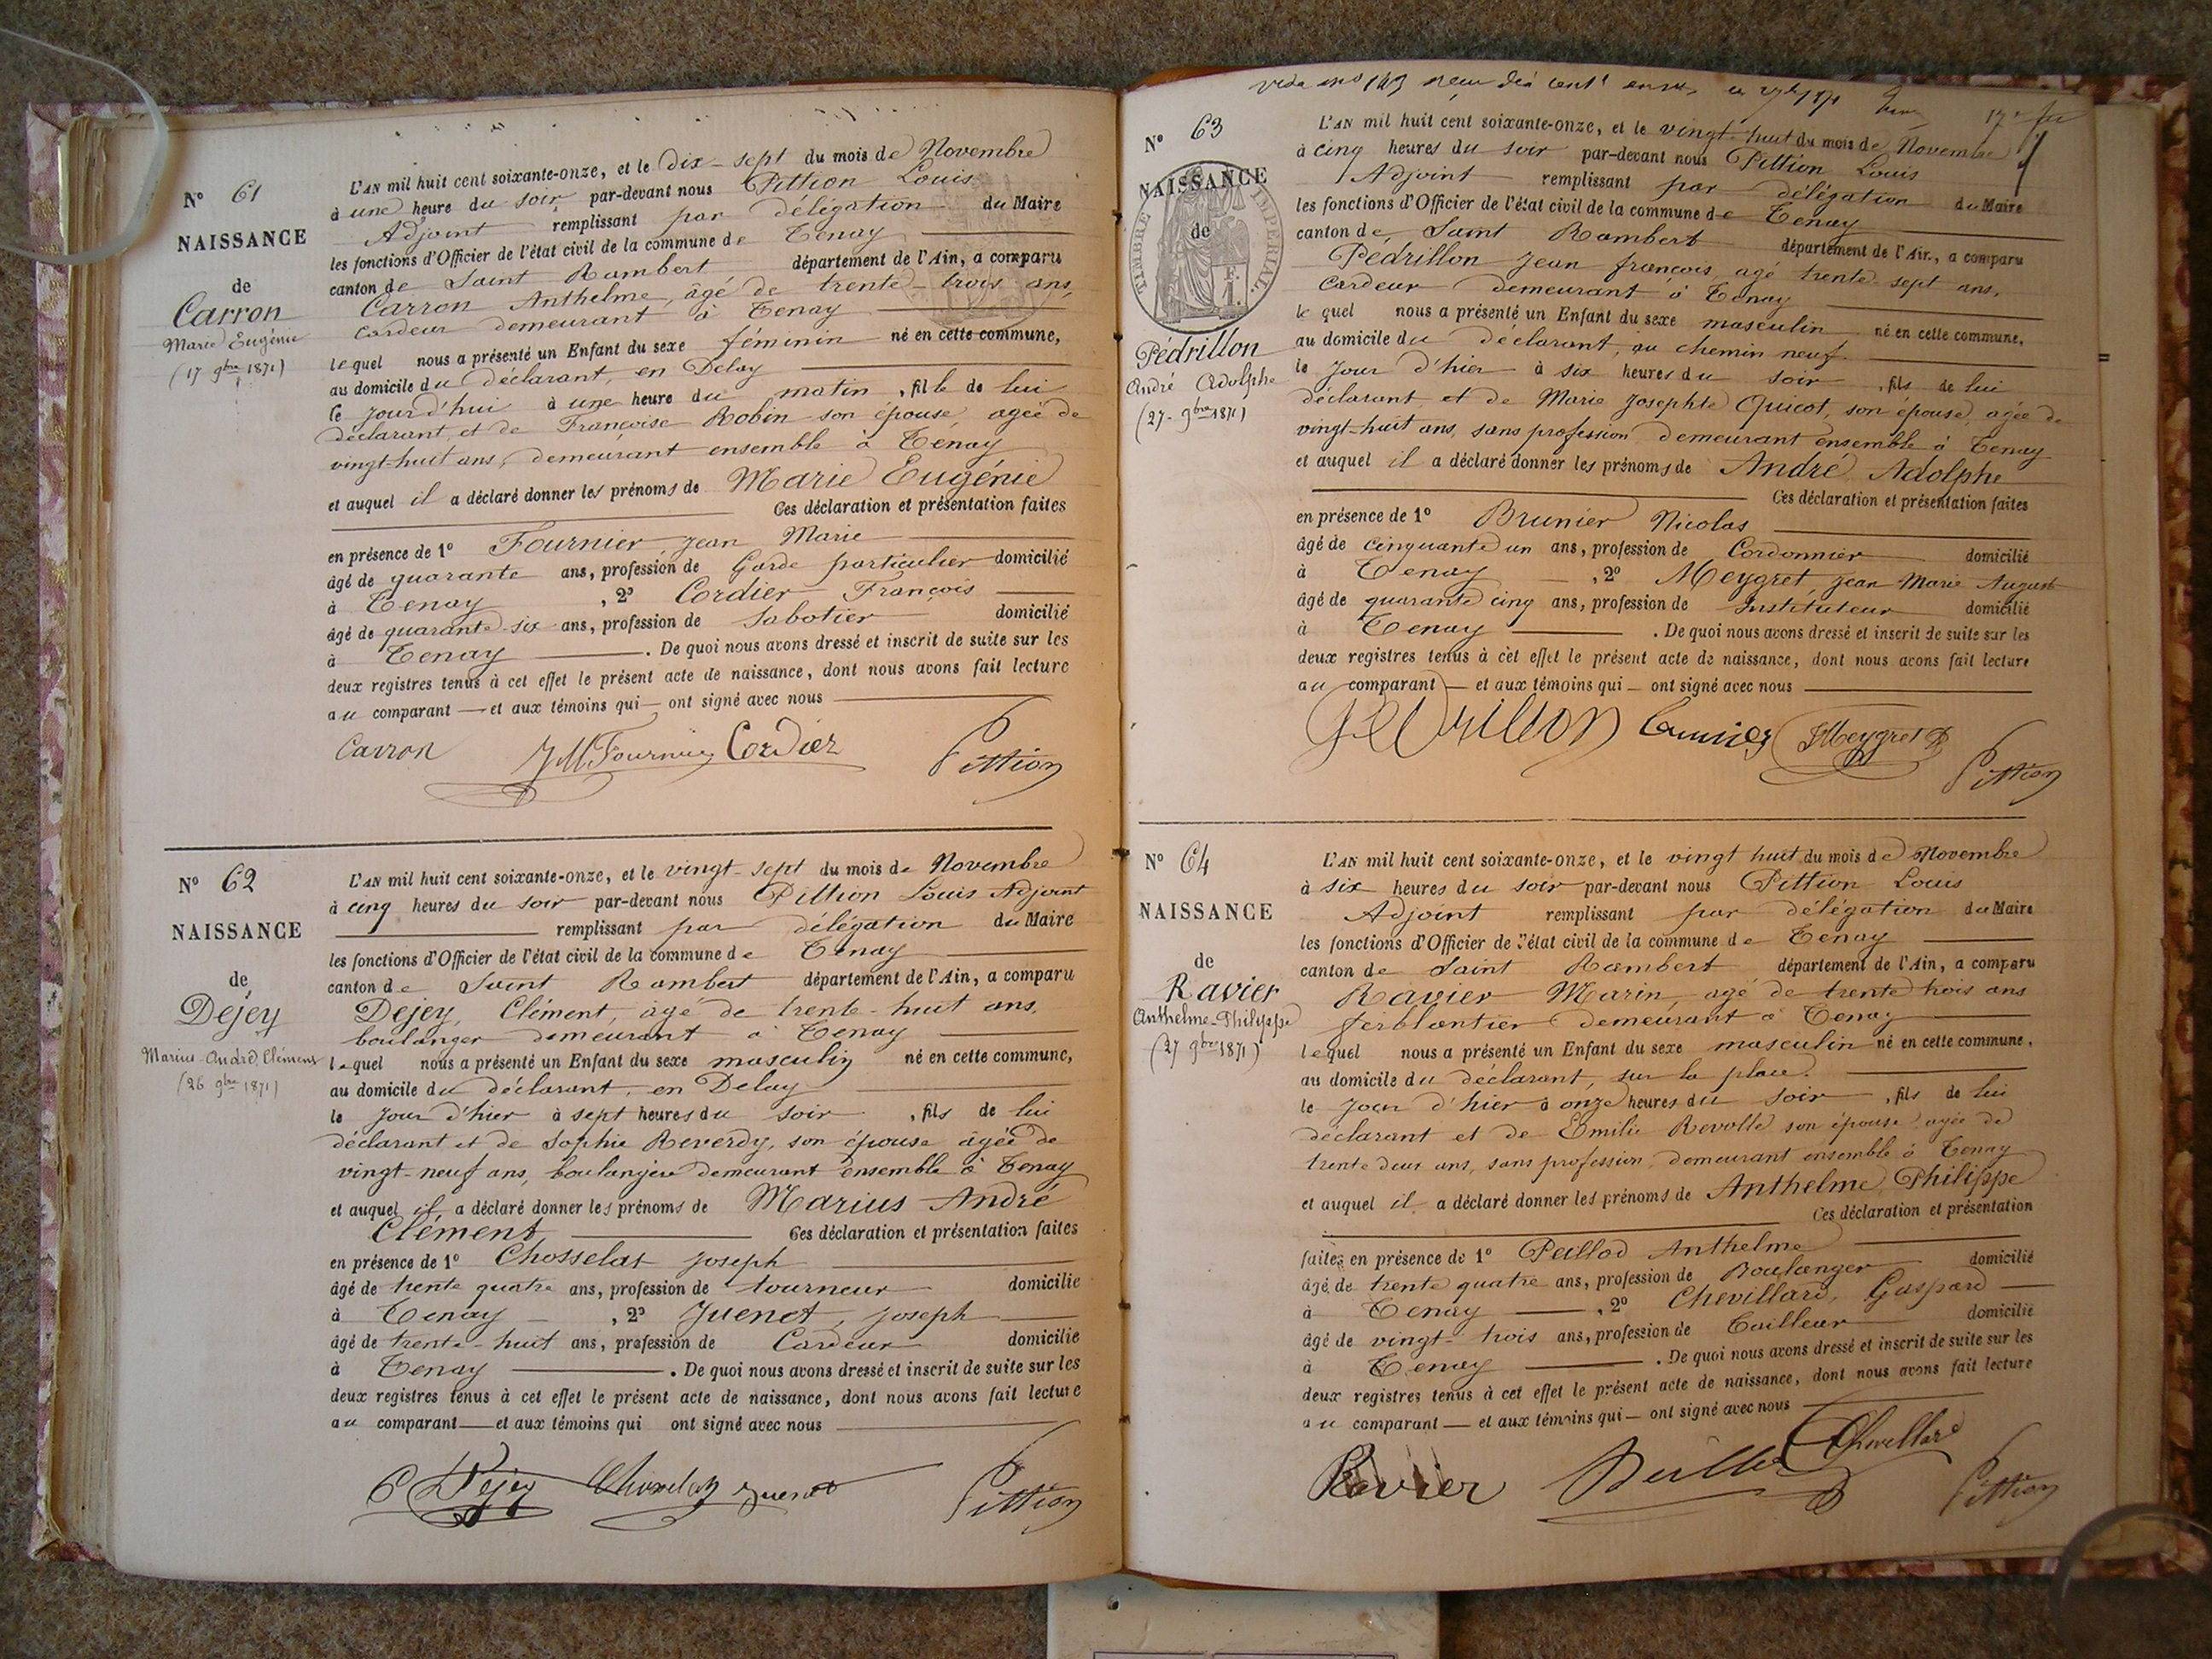 N° 61
NAISSANCE
de
Carron
Marie Eugénie
(17 9bre 1871)
L'AN mil huit cent soixante-onze, et le dix-sept du mois de Novembre
à une heure du soir par-devant nous Pittion Louis
Adjoint remplissant par délégation du Maire
les fonctions d'Officier de l'état civil de la commune de Tenay
canton de Saint Rambert département de l'Ain, a comparu
Carron Anthelme, âgé de trente-trois ans,
cardeur demeurant à Tenay
lequel nous a présenté un Enfant du sexe féminin né en cette commune,
au domicile du déclarant, en Delay
le jour d'hui à une heure du matin, fille de lui
déclarant, et de Françoise Robin son épouse, agée de
vingt-huit ans, demeurant ensemble à Tenay
et auquel il a déclaré donner les prénoms de Marie Eugénie
Ces déclaration et présentation faites
en présence de 1° Fournier Jean Marie
âgé de quarante ans, profession de Garde particulier domicilié
à Tenay, 2° Cordier François
âgé de quarante-six ans, profession de Sabotier domicilié
à Tenay. De quoi nous avons dressé et inscrit de suite sur les
deux registres tenus à cet effet le présent acte de naissance, dont nous avons fait lecture
au comparant et aux témoins qui ont signé avec nous
Carron JM Fournier Cordier Pittion
N° 62
NAISSANCE
de
Dejey
Marius-André, Clément
(26 9bre 1871)
L'AN mil huit cent soixante-onze, et le vingt-sept du mois de Novembre
à cinq heures du soir par-devant nous Pittion Louis Adjoint
remplissant par délégation du Maire
les fonctions d'Officier de l'état civil de la commune de Tenay
canton de Saint Rambert département de l'Ain, a comparu
Dejey, Clément, âgé de trente-huit ans,
boulanger demeurant à Tenay
lequel nous a présenté un Enfant du sexe masculin né en cette commune,
au domicile du déclarant, en Delay
le jour d'hier à sept heures du soir, fils de lui
déclarant et de Sophie Reverdy, son épouse âgée de
vingt-neuf ans, boulangère demeurant ensemble à Tenay
et auquel il a déclaré donner les prénoms de Marius André
Clément Ces déclaration et présentation faites
en présence de 1° Chosselat Joseph
âgé de trente quatre ans, profession de tourneur domicilié
à Tenay, 2° Juenet, Joseph
âgé de trente-huit ans, profession de Cardeur domicilié
à Tenay. De quoi nous avons dressé et inscrit de suite sur les
deux registres tenus à cet effet le présent acte de naissance, dont nous avons fait lecture
au comparant et aux témoins qui ont signé avec nous
C Dejey Chosselat Juenet Pittion
N° 63
NAISSANCE
de
TIMBRE IMPÉRIAL
1 F.
Pédrillon
André Adolphe
(27-9bre 1871)
L'AN mil huit cent soixante-onze, et le vingt-huit du mois de Novembre
à cinq heures du soir par-devant nous Pittion Louis
Adjoint remplissant par délégation du Maire
les fonctions d'Officier de l'état civil de la commune de Tenay
canton de Saint Rambert département de l'Ain, a comparu
Pédrillon Jean françois, agé trente-sept ans,
cardeur demeurant à Tenay
lequel nous a présenté un Enfant du sexe masculin né en cette commune,
au domicile du déclarant, au chemin neuf
le jour d'hier à six heures du soir, fils de lui
déclarant, et de Marie Josephte Quicot, son épouse, agée de
vingt-huit ans, sans profession demeurant ensemble à Tenay
et auquel il a déclaré donner les prénoms de André Adolphe
Ces déclaration et présentation faites
en présence de 1° Brunier Nicolas
âgé de cinquante un ans, profession de Cordonnier domicilié
à Tenay, 2° Meygret Jean Marie August
âgé de quarante cinq ans, profession de Instituteur domicilié
à Tenay. De quoi nous avons dressé et inscrit de suite sur les
deux registres tenus à cet effet le présent acte de naissance, dont nous avons fait lecture
au comparant et aux témoins qui ont signé avec nous
Pedrillon Brunier JMeygret Pittion
N° 64
NAISSANCE
de
Ravier
Anthelme-Philippe
(27 9bre 1871)
L'AN mil huit cent soixante-onze, et le vingt huit du mois de Novembre
à six heures du soir par-devant nous Pittion Louis
Adjoint remplissant par délégation du Maire
les fonctions d'Officier de l'état civil de la commune de Tenay
canton de Saint Rambert département de l'Ain, a comparu
Ravier Marin, agé de trente trois ans
ferblantier demeurant à Tenay
lequel nous a présenté un Enfant du sexe masculin né en cette commune,
au domicile du déclarant, sur la place.
le jour d'hier à onze heures du soir, fils de lui
déclarant et de Emilie Revolle son épouse agée de
trente deux ans, sans profession, demeurant ensemble à Tenay
et auquel il a déclaré donner les prénoms de Anthelme, Philippe
Ces déclaration et présentation
faites en présence de 1° Peillod Anthelme
âgé de trente quatre ans, profession de Boulanger domicilié
à Tenay, 2° Chevillard, Gaspard
âgé de vingt-trois ans, profession de Tailleur domicilié
à Tenay. De quoi nous avons dressé et inscrit de suite sur les
deux registres tenus à cet effet le présent acte de naissance, dont nous avons fait lecture
au comparant et aux témoins qui ont signé avec nous
Ravier Peillod Chevillard Pittion